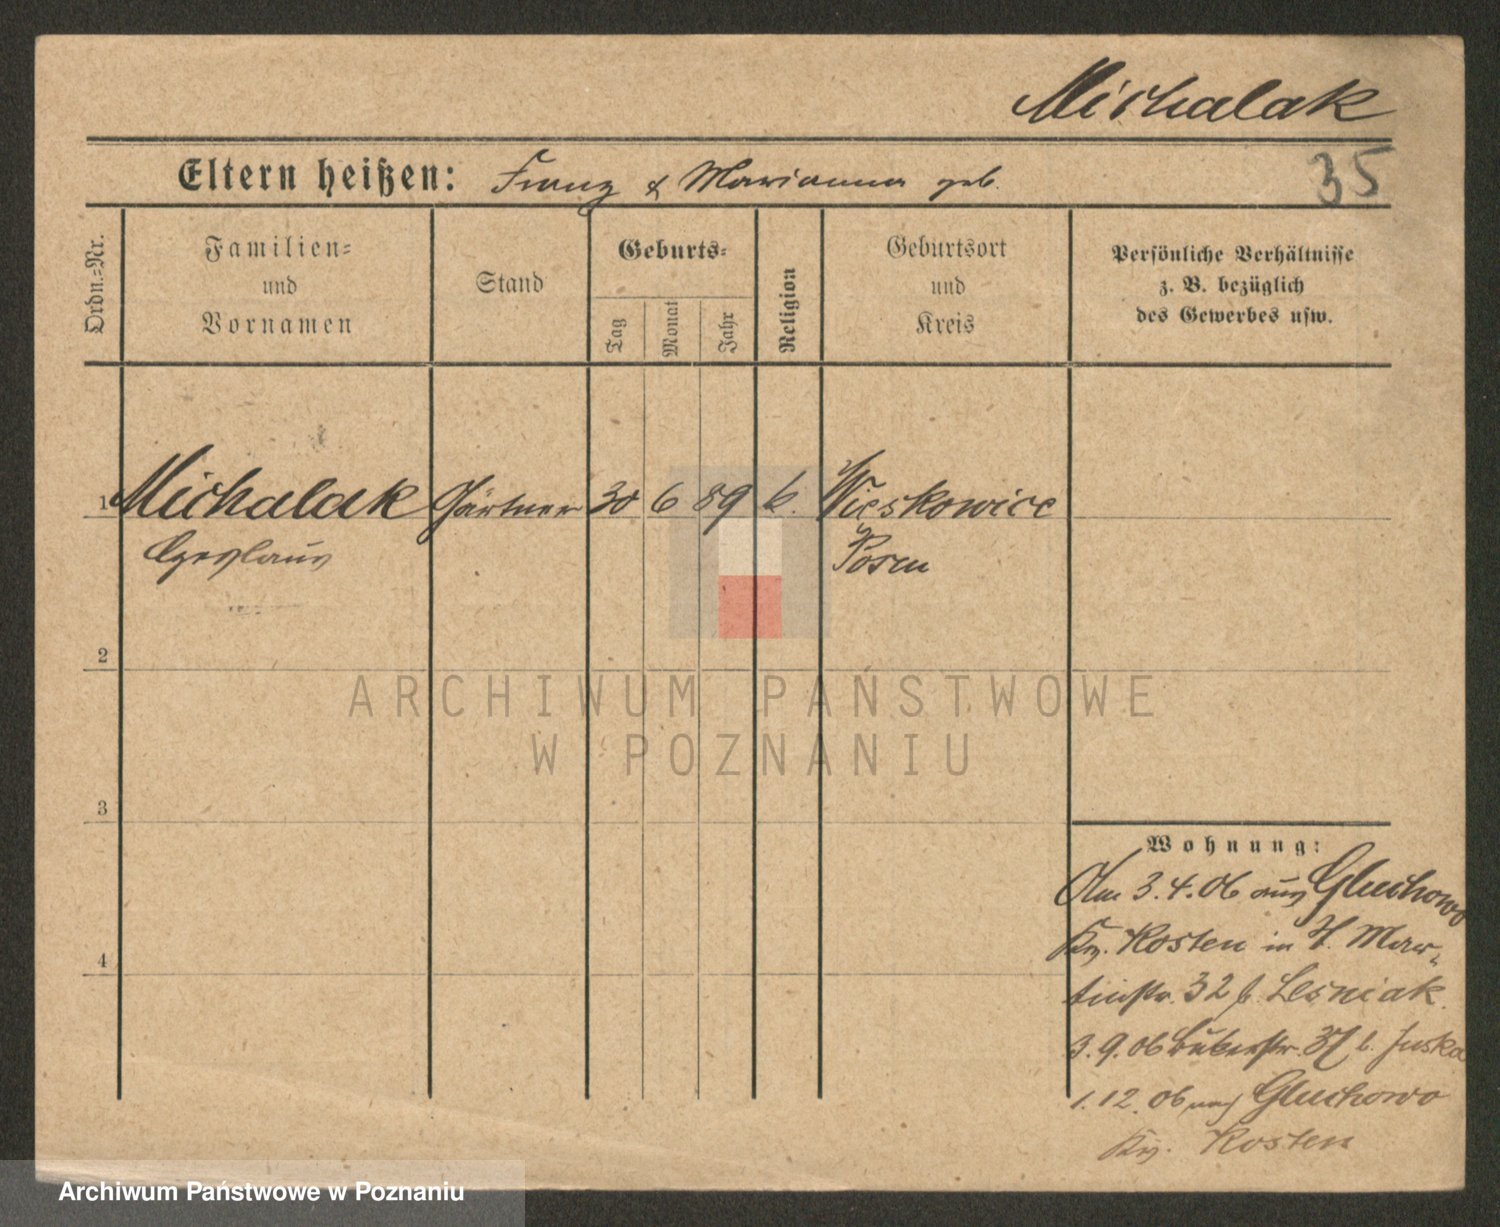 Michalak
Eltern heißen: Franz & Marianna geb.
35
Ordn.-Nr.
Familien- und Vornamen
Stand
Geburts-
Tag
Monat
Jahr
Religion
Geburtsort und Kreis
Persönliche Verhältnisse
z. B. bezüglich
des Gewerbes usw.
1 Michalak Gärtner 30 6 89 k. Wieskowice
Czeslaus Posen
2
ARCHIWUM PAŃSTWOWE
W POZNANIU
3
Wohnung:
Am 3.4.06 aus Gluchowo
Krs. Kosten in St. Mar-
tinstr. 32 b. Lesniak.
3.9.06 b. Juska
4
1.12.06 nach Gluchowo
Krs. Kosten
Archiwum Państwowe w Poznaniu